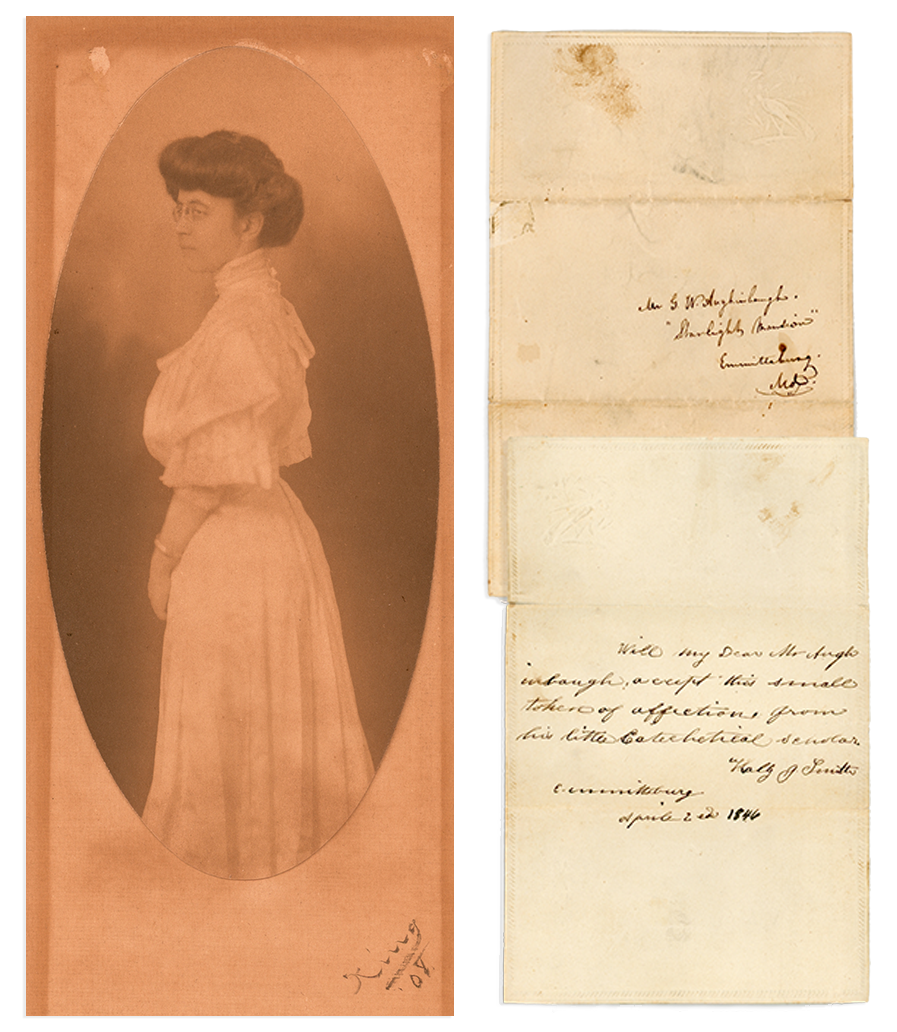 King
08
Mr G. W. Aughinbaugh.
"Starlight Mansion"
Emmittsburg.
Md.
Will my Dear Mr Augh
inbaugh, accept this small
token of affection, from
his little Catechetical scholar.
J Smith
Emmittsburg
April 2ed 1846